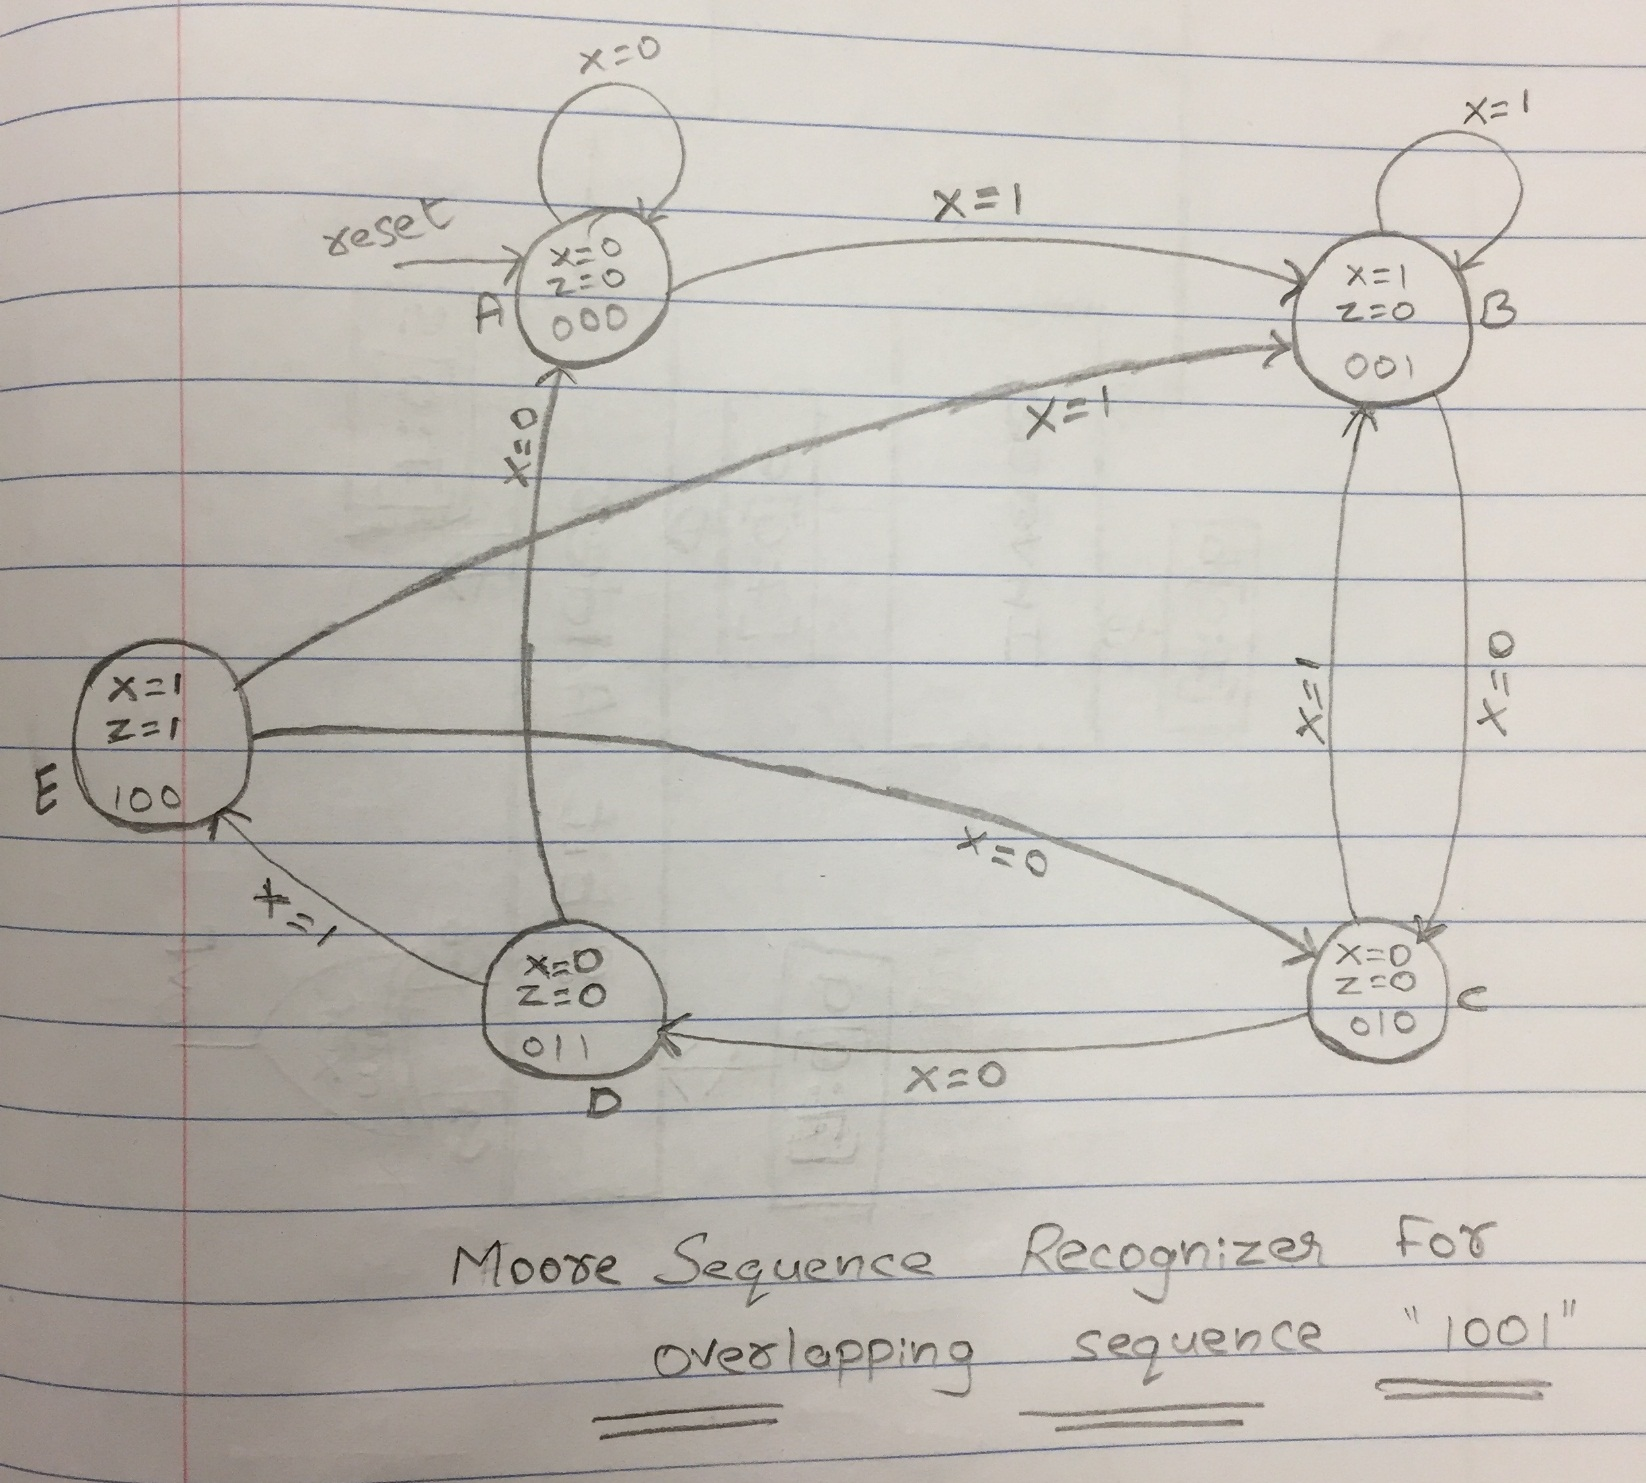 x=0
x=1
reset
x=1
x=0
z=0
000
A
x=1
z=0
001
B
x=0
x=1
x=1
z=1
100
E
x=1
x=0
x=0
x=1
x=0
z=0
011
D
x=0
z=0
010
C
x=0
Moore Sequence Recognizer For
overlapping sequence "1001"